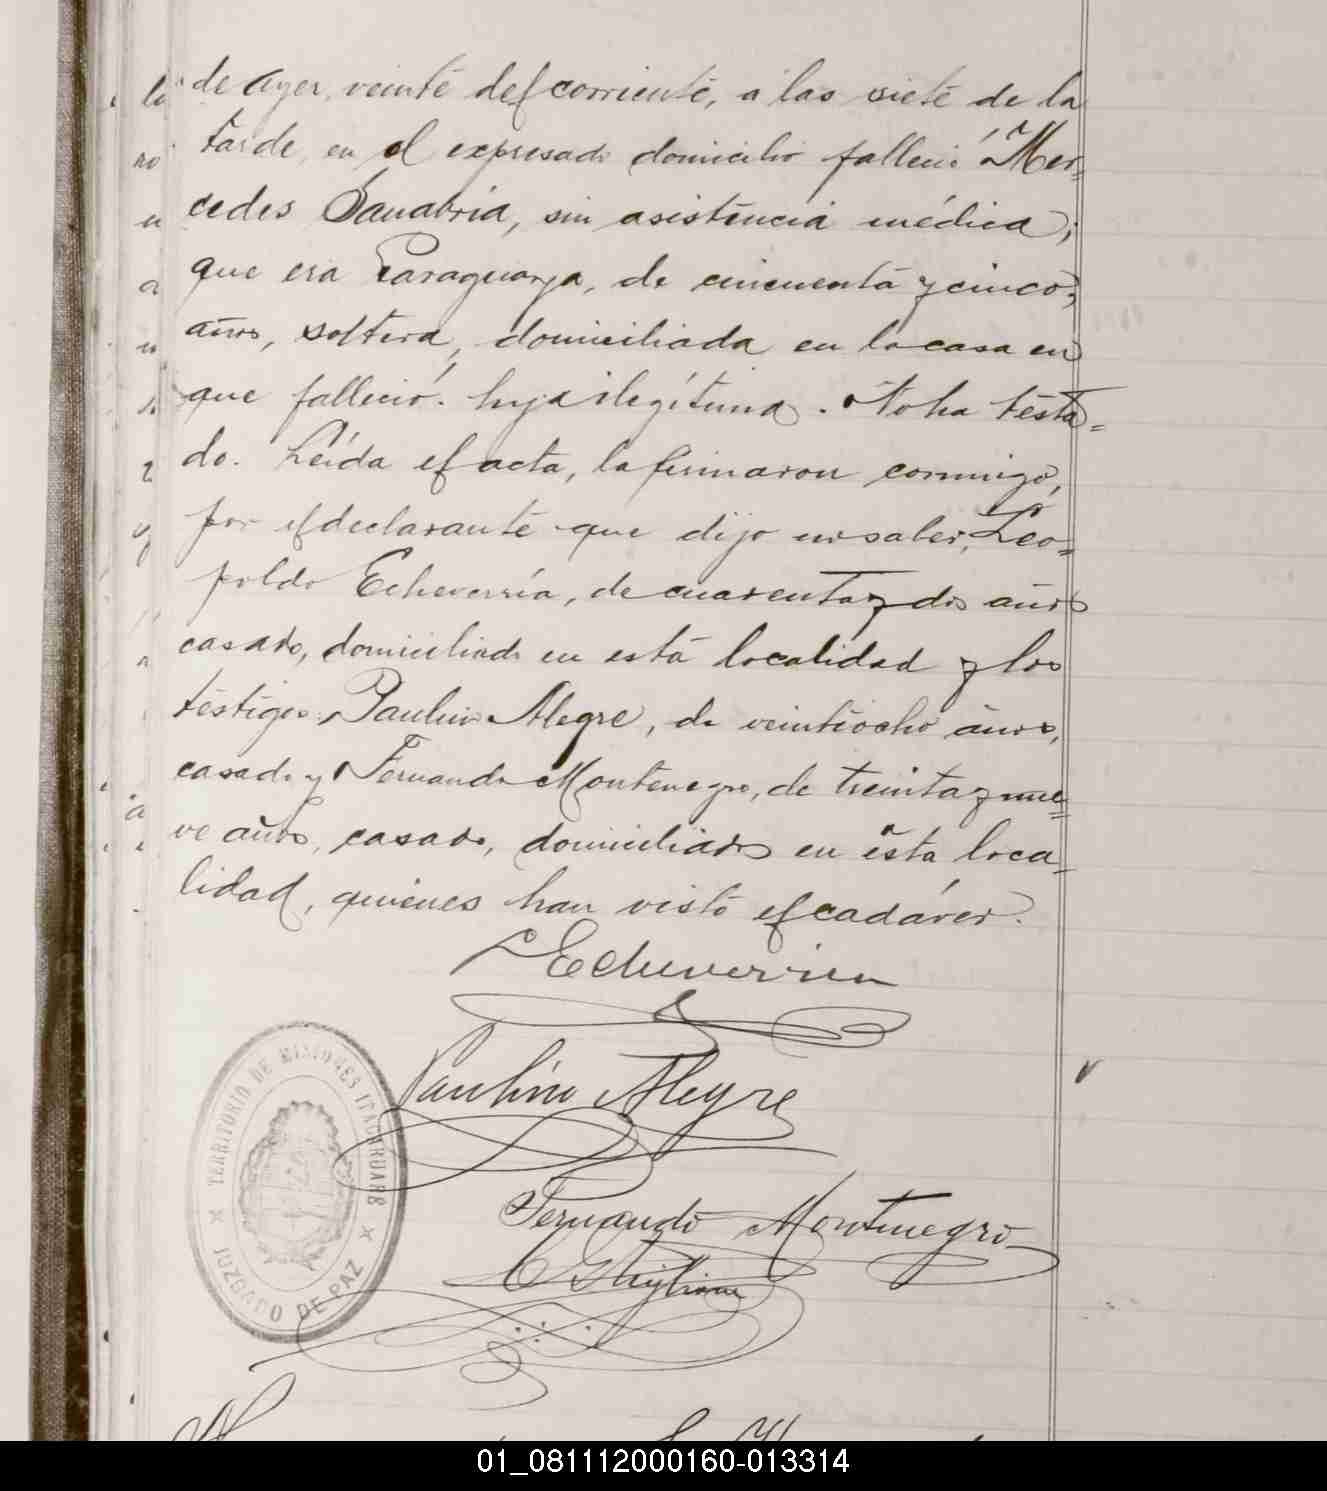 de ayer, veinte del corriente, a las siete de la
tarde, en el expresado domicilio falleció Mer=
cedes Sanabria, sin asistencia médica;
que era Paraguaya, de cincuenta y cinco
años, soltera, domiciliada en la casa en
que falleció. hija ilegítima. No ha testa=
do. Leída el acta, la firmaron conmigo,
por el declarante que dijo no saber, Leo=
poldo Echeverría, de cuarenta y dos años
casado, domiciliado en esta localidad y los
testigos Paulino Alegre, de veintiocho años,
casado y Fernando Montenegro, de treinta y nue=
ve años, casado, domiciliados en esta loca=
lidad, quienes han visto el cadáver.
L Echeverria
Paulino Alegre
TERRITORIO DE MISIONES ITACURUARE
JUZGADO DE PAZ
Fernando Montenegro
01_081112000160-013314